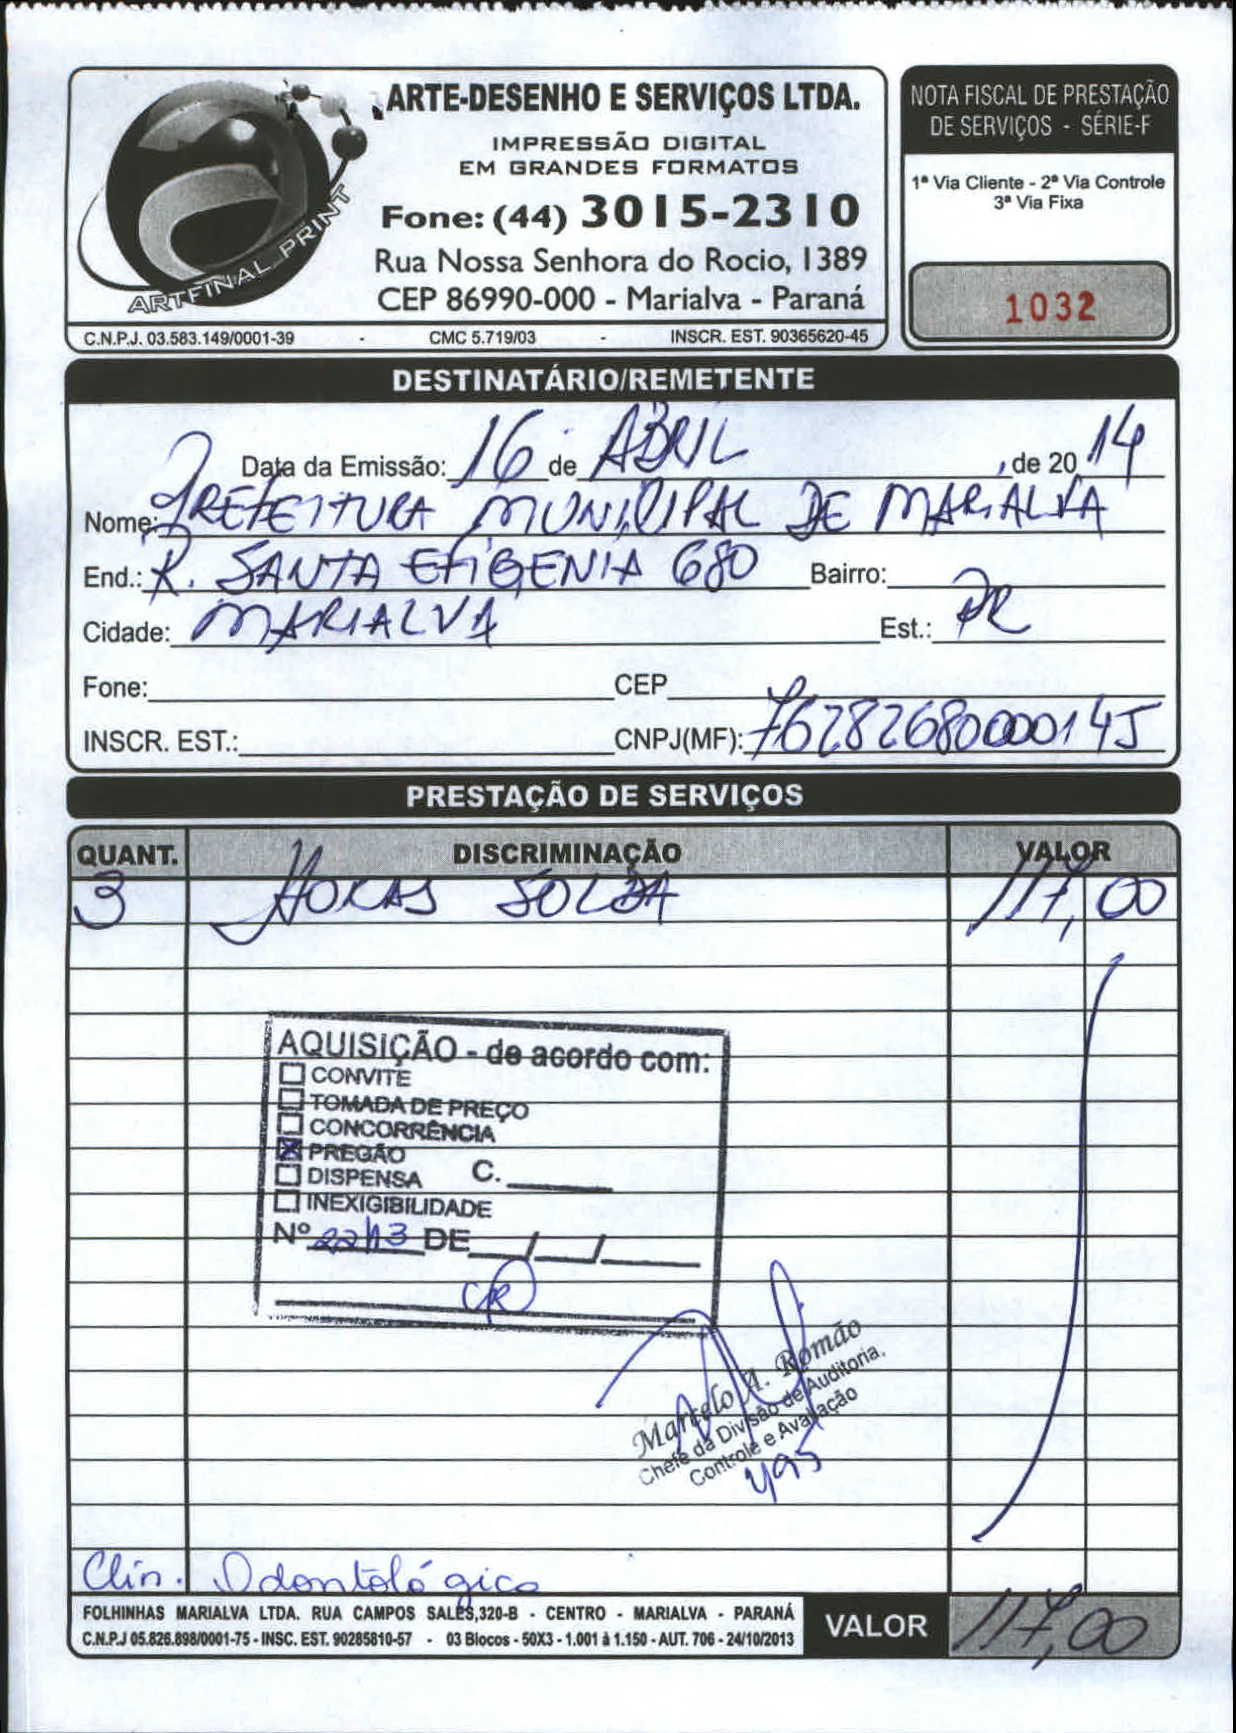 ARTE-DESENHO E SERVIÇOS LTDA.
IMPRESSÃO DIGITAL
EM GRANDES FORMATOS
Fone: (44) 3015-2310
Rua Nossa Senhora do Rocio, 1389
CEP 86990-000 - Marialva - Paraná
ARTFINAL PRINT
C.N.P.J. 03.583.149/0001-39 - CMC 5.719/03 - INSCR. EST. 90365620-45
NOTA FISCAL DE PRESTAÇÃO
DE SERVIÇOS - SÉRIE-F
1ª Via Cliente - 2ª Via Controle
3ª Via Fixa
1032
DESTINATÁRIO/REMETENTE
Data da Emissão: 16 de ABRIL, de 2014
Nome: PREFEITURA MUNICIPAL DE MARIALVA
End.: R. SANTA EFIGENIA 680 Bairro:
Cidade: MARIALVA Est.: PR
Fone: CEP
INSCR. EST.: CNPJ(MF): 76282680000145
PRESTAÇÃO DE SERVIÇOS
QUANT. DISCRIMINAÇÃO VALOR
3 HORAS SOLDA 117,00
AQUISIÇÃO - de acordo com:
CONVITE
TOMADA DE PREÇO
CONCORRÊNCIA
PREGÃO
DISPENSA C.
INEXIGIBILIDADE
Nº 22/13 DE / /
Marcelo A. Romão
Chefe da Divisão de Auditoria.
Controle e Avaliação
Clin. Odontológica
FOLHINHAS MARIALVA LTDA. RUA CAMPOS SALES,320-B - CENTRO - MARIALVA - PARANÁ
C.N.P.J 05.826.898/0001-75 - INSC. EST. 90285810-57 - 03 Blocos - 50X3 - 1.001 à 1.150 - AUT. 706 - 24/10/2013
VALOR 117,00